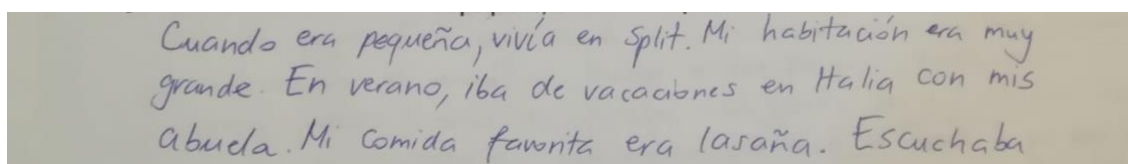 Cuando era pequeña, vivía en Split. Mi habitación era muy
grande. En verano, iba de vacaciones en Italia con mis
abuela. Mi comida favorita era lasaña. Escuchaba